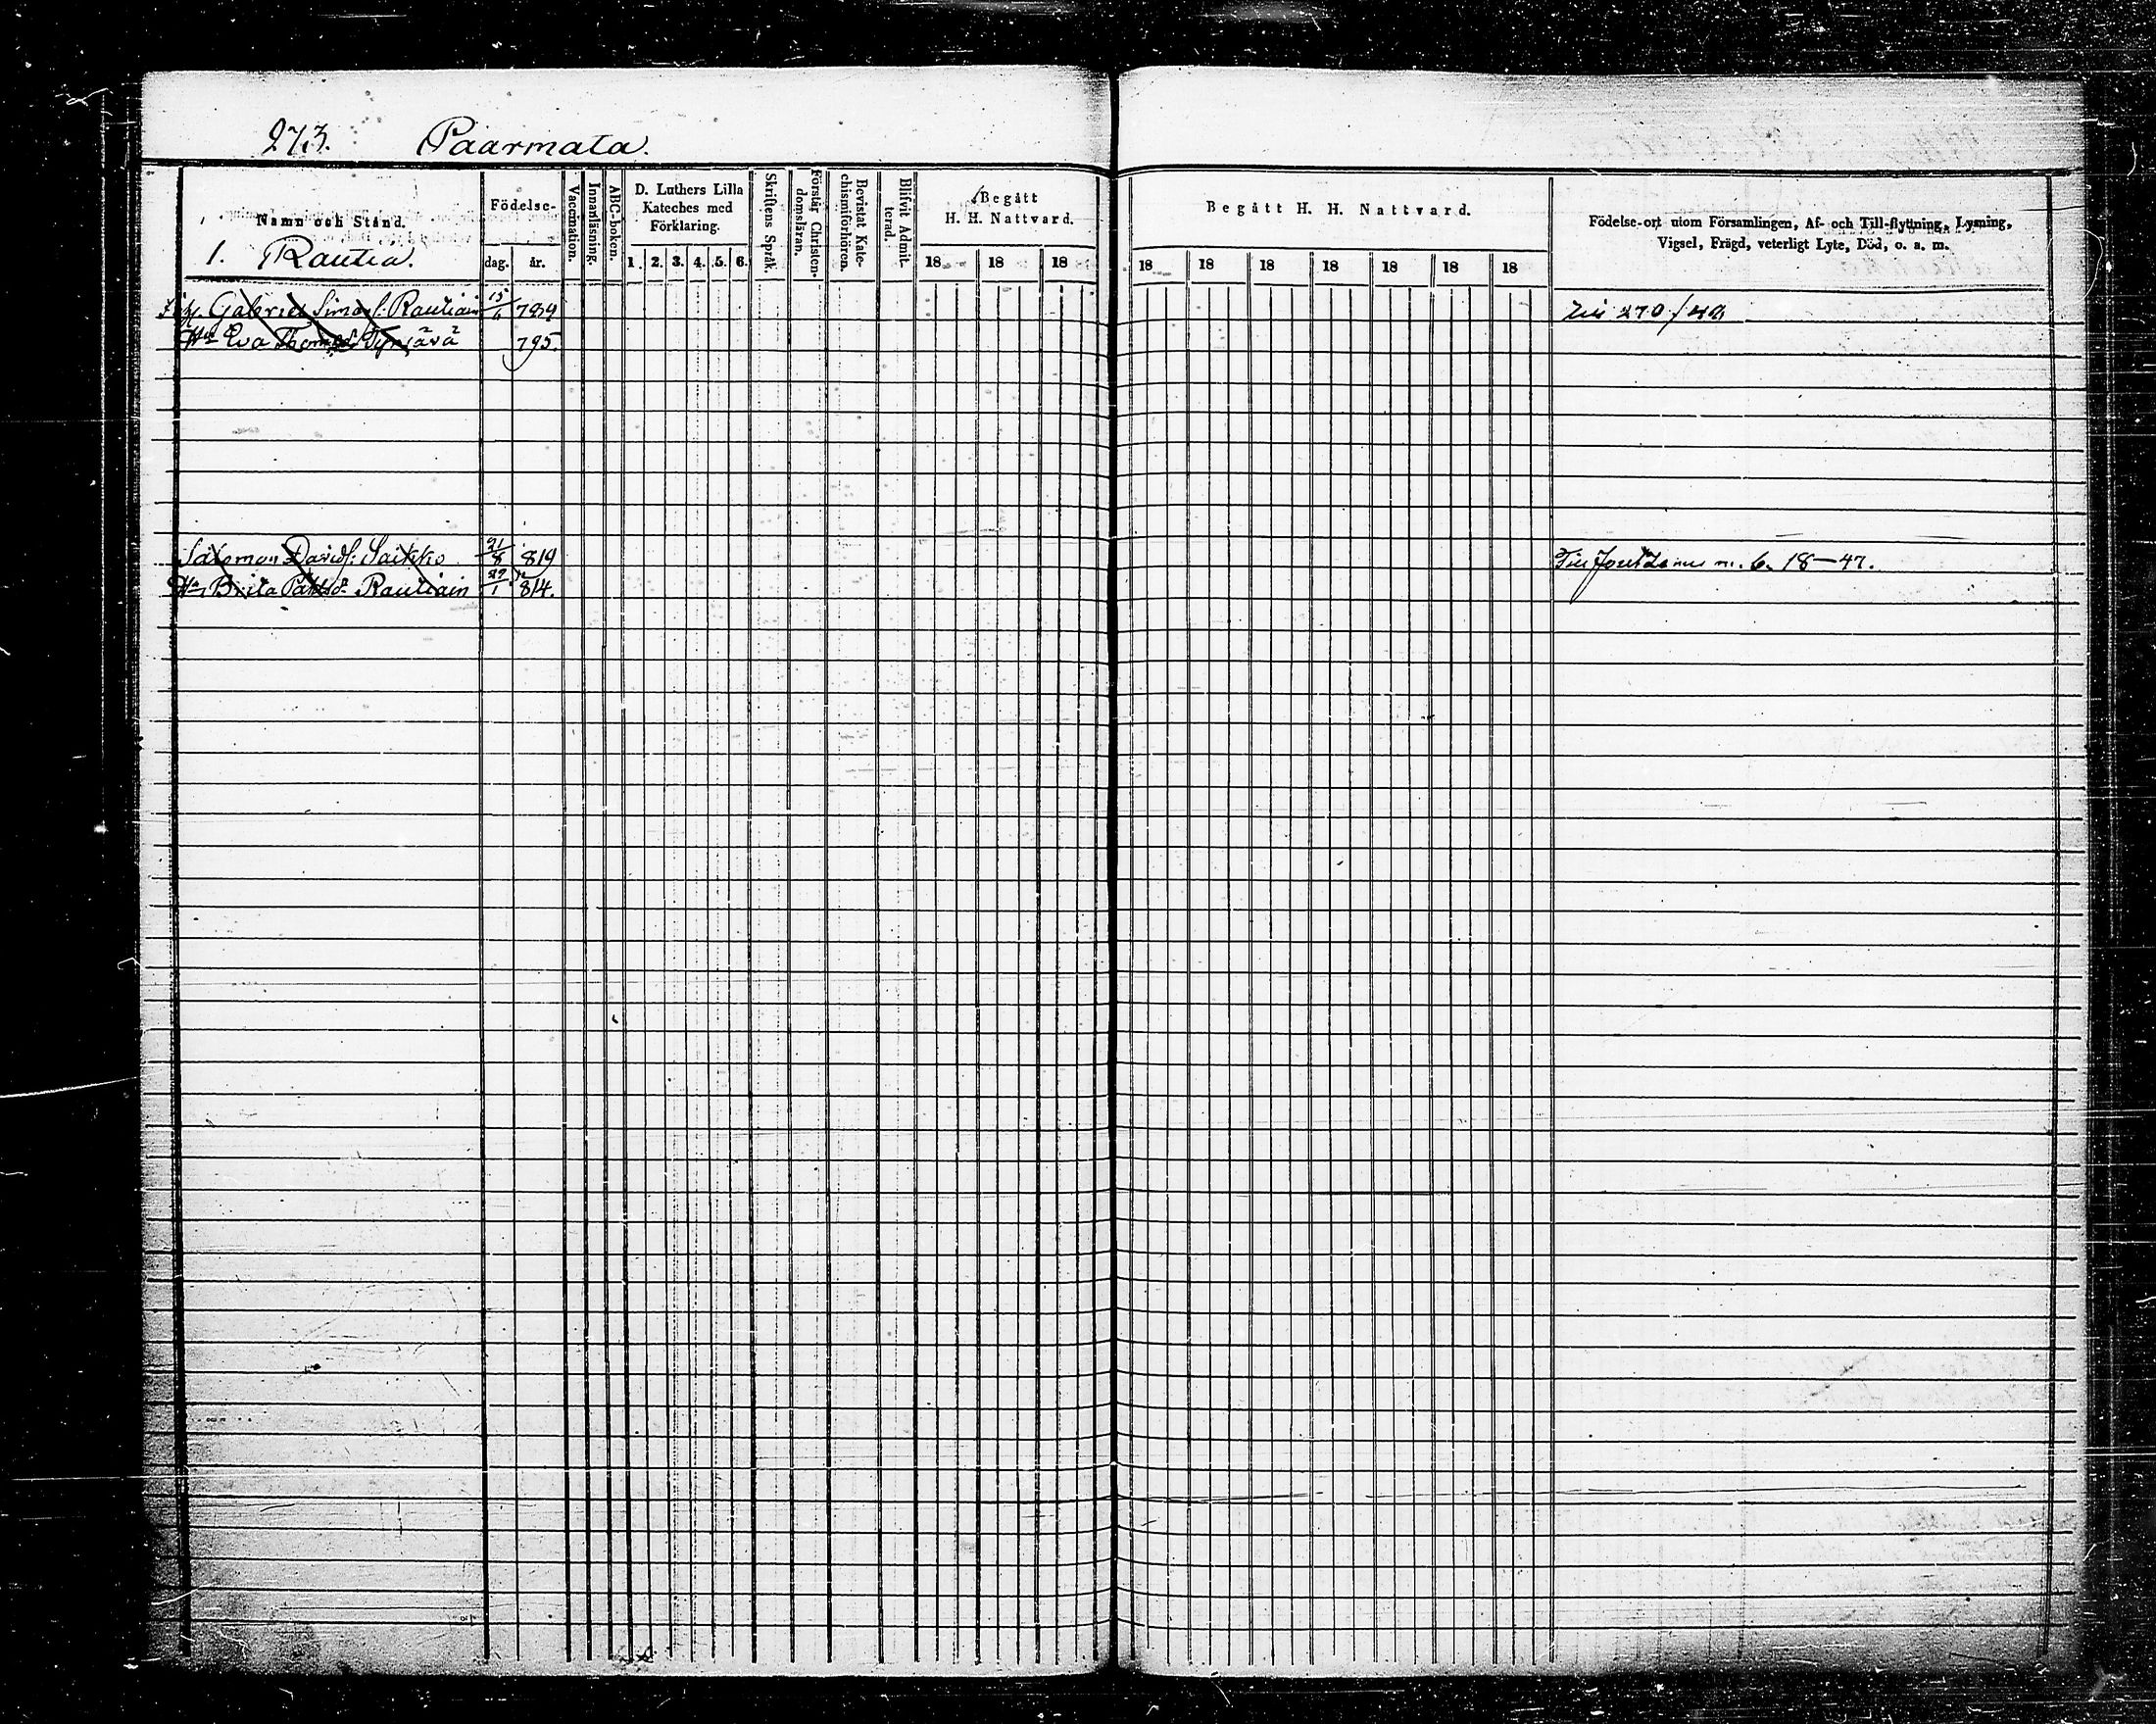 273. Paarmata.
Namn och Stånd.
1. Rautia.
Födelse-
dag. år.
Vaccination.
Innanläsning.
ABC-boken.
D. Luthers Lilla
Kateches med
Förklaring.
1. 2. 3. 4. 5. 6.
Skriftens Språk.
Förstår Christen-
domsläran.
Bevistat Kate-
chismiförhören.
Blifvit Admit-
terad.
Begått
H. H. Nattvard.
18 18 18
Begått H. H. Nattvard.
18 18 18 18 18 18 18
Födelse-ort utom Församlingen, Af- och Till-flyttning, Lysning,
Vigsel, Frägd, veterligt Lyte, Död, o. a. m.
Gabriel Simo s: Rautiain 15/ 789 270/42
Hu Eva 795.
Salomon Davids: Saikko 21/8 819 Till m. 6. 18–47.
Hu Brita Rautiain 29/1 814.